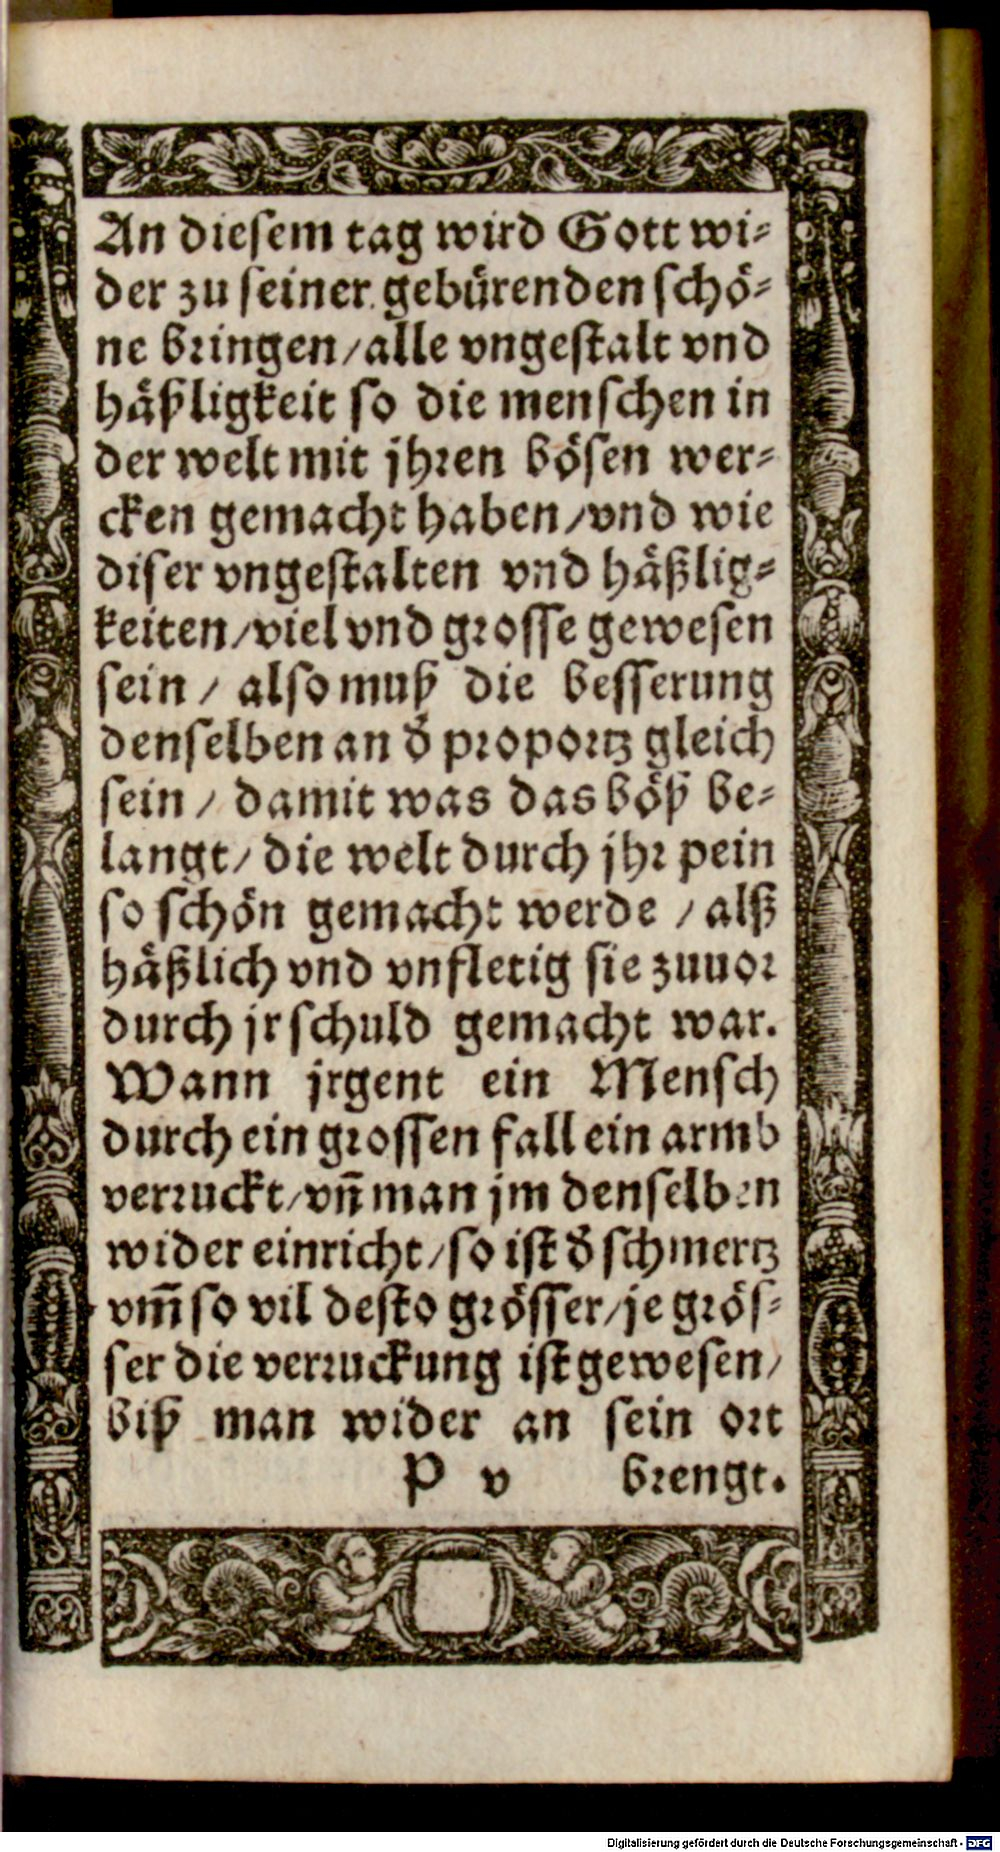 An diesem tag wird Gott wi-
der zu seiner gebürenden schö-
ne bringen/alle vngestalt vnd
häßligkeit so die menschen in
der welt mit jhren bösen wer-
cken gemacht haben/vnd wie
diser vngestalten vnd häßlig-
keiten/viel vnd grosse gewesen
sein/ also muß die besserung
denselben an d̄ proportz gleich
sein/ damit was das böß be-
langt/ die welt durch jhr pein
so schön gemacht werde /alß
häßlich vnd vnfletig sie zuuor
durch jr schuld gemacht war.
Wann jrgent ein Mensch
durch ein grossen fall ein armb
verruckt/vn̄ man jm denselben
wider einricht/so ist d̄ schmertz
vm̄ so vil desto grösser/je grös-
ser die verruckung ist gewesen/
biß man wider an sein ort
P v brengt.
Digitalisierung gefördert durch die Deutsche Forschungsgemeinschaft - DFG